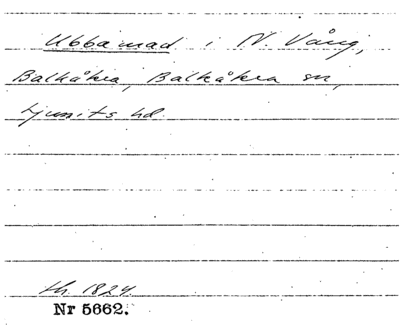 Ubbamad i N. Vång,
Balkåkra, Balkåkra sn,
Ljunits hd.
th. 1824
Nr 5662.